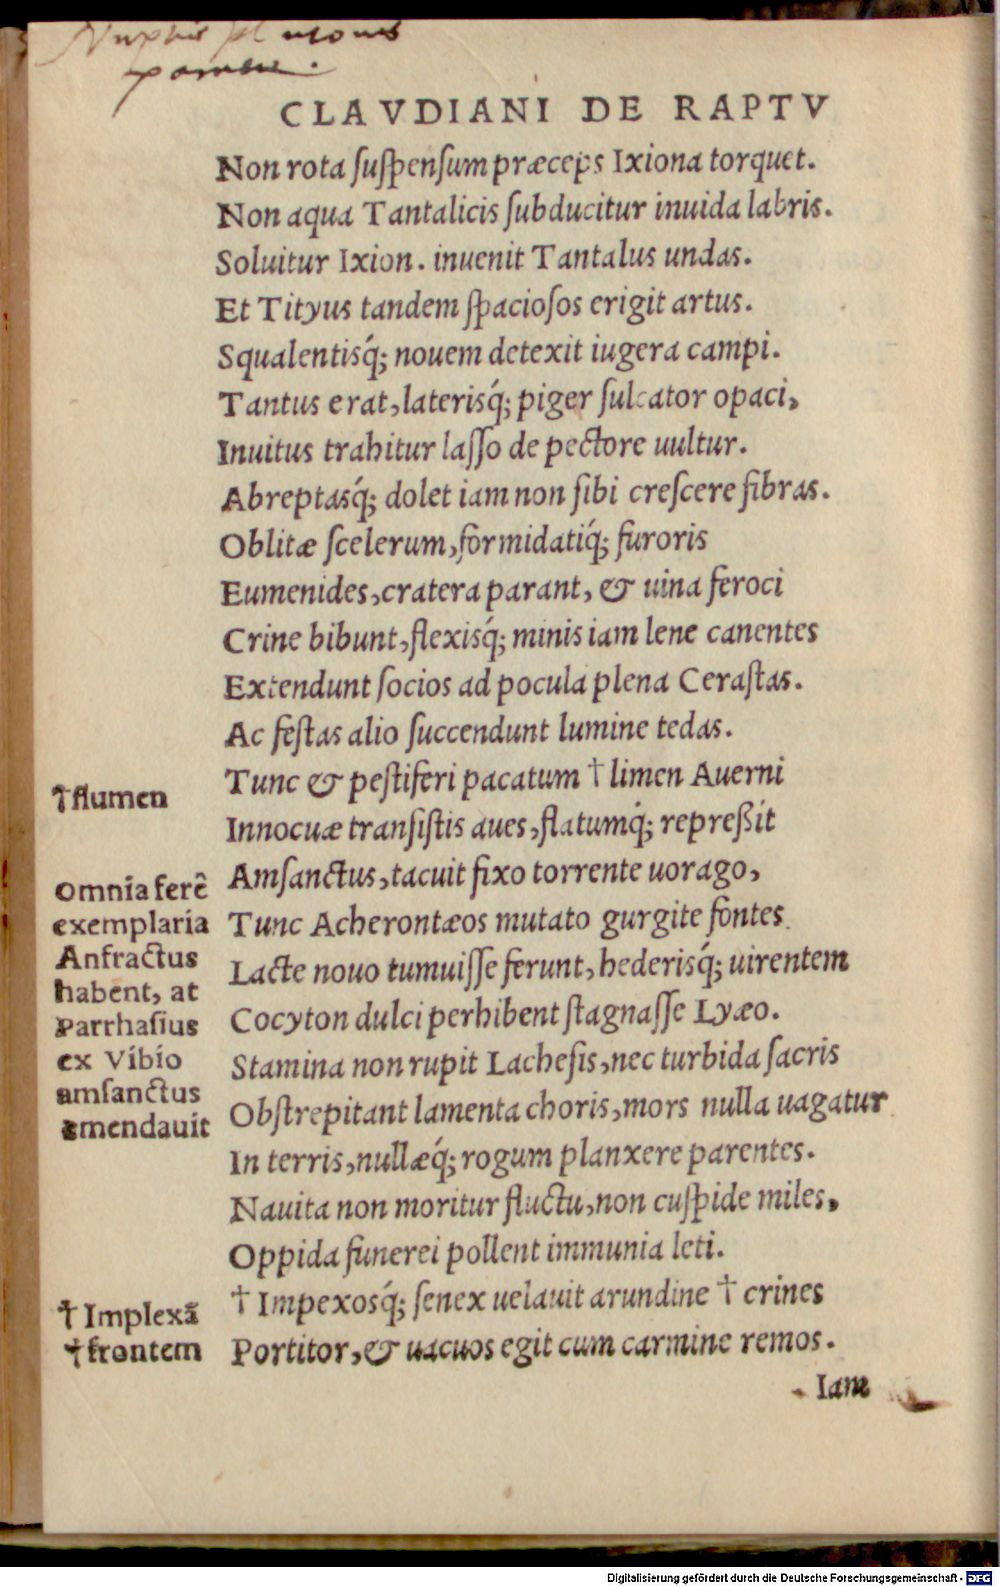 CLAVDIANI DE RAPTV
Non rota ſuſpenſum præceps Ixiona torquet.
Non aqua Tantalicis ſubducitur inuida labris.
Soluitur Ixion. inuenit Tantalus undas.
Et Tityus tandem ſpacioſos erigit artus.
Squalentisq́; nouem detexit iugera campi.
Tantus erat, laterisq́; piger ſulcator opaci,
Inuitus trahitur laſſo de pectore uultur.
Abreptasq́; dolet iam non ſibi creſcere fibras.
Oblitæ ſcelerum, formidatiq́; furoris
Eumenides, cratera parant, & uina feroci
Crine bibunt, flexisq́; minis iam lene canentes
Extendunt ſocios ad pocula plena Ceraſtas.
Ac feſtas alio ſuccendunt lumine tedas.
Tunc & peſtiferi pacatum † limen Auerni
†flumen
Innocuæ tranſiſtis aues, flatumq́; repreßit
Amſanctus, tacuit fixo torrente uorago,
Tunc Acherontæos mutato gurgite fontes
Lacte nouo tumuiſſe ferunt, hederisq́; uirentem
Cocyton dulci perhibent ſtagnaſſe Lyæo.
Stamina non rupit Lacheſis, nec turbida ſacris
Obſtrepitant lamenta choris, mors nulla uagatur
In terris, nullæq́; rogum planxere parentes.
Omnia ferẽ
exemplaria
Anfractus
habent, at
Parrhaſius
ex Vibio
amſanctus
emendauit
Nauita non moritur fluctu, non cuſpide miles,
Oppida funerei pollent immunia leti.
† Impexosq́; ſenex uelauit arundine † crines
Portitor, & uacuos egit cum carmine remos.
† Implexã
†frontem
Iam
Digitalisierung gefördert durch die Deutsche Forschungsgemeinschaft - DFG